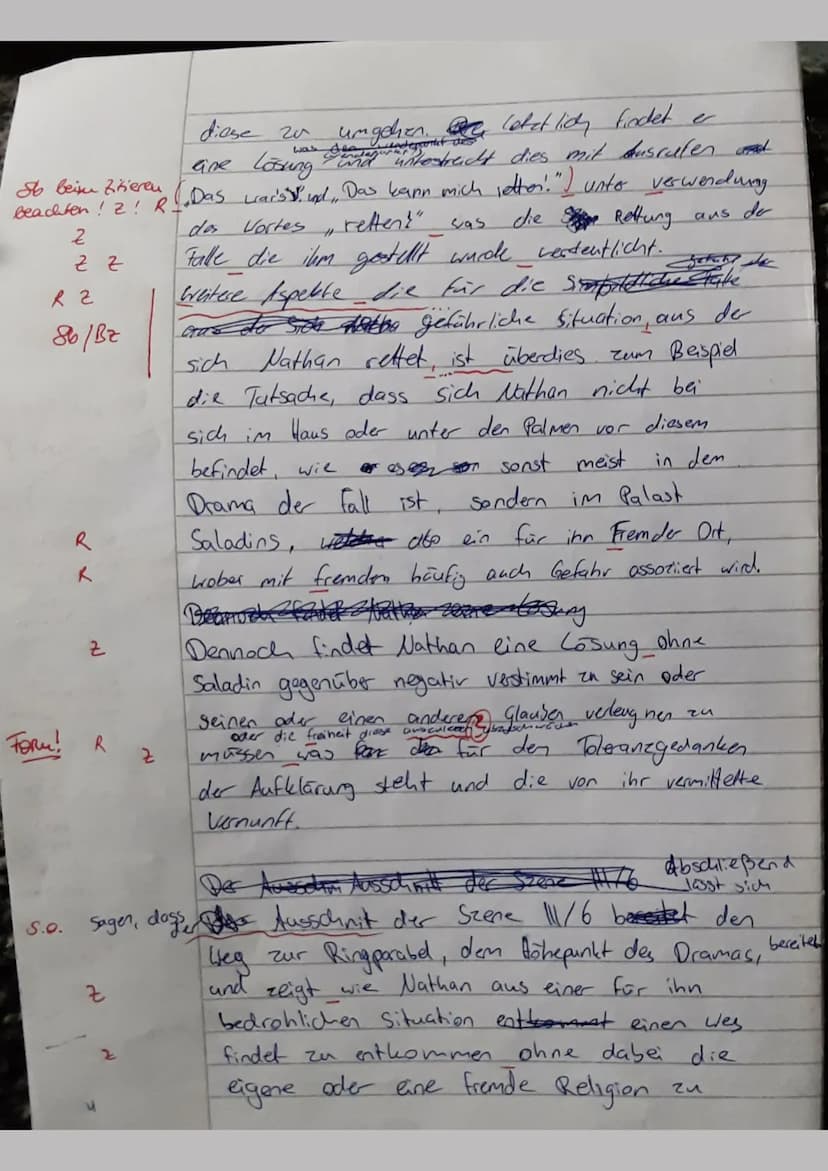 diese zu umgehen. Letztlich findet er
eine Lösung und unterstreicht dies mit Ausrufen
Sb beim Zitieren „Das war's!" und „Das kann mich retten!") unter Verwendung
beachten! Z! R des Wortes „retten!" was die Rettung aus der
Z
Z Z Falle die ihm gestellt wurde verdeutlicht.
R Z Weitere Aspekte die für die
Sb/Bz gefährliche Situation, aus der
sich Nathan rettet, ist überdies zum Beispiel
die Tatsache, dass sich Nathan nicht bei
sich im Haus oder unter den Palmen vor diesem
befindet, wie es sonst meist in dem
Drama der Fall ist, sondern im Palast
R Saladins, also ein für ihn Fremder Ort,
R wobei mit fremden häufig auch Gefahr assoziiert wird.
Z Dennoch findet Nathan eine Lösung ohne
Saladin gegenüber negativ verstimmt zu sein oder
seinen oder einen anderen Glauben verleugnen zu
oder die freiheit diese
Form! R Z müssen was für den Toleranzgedanken
der Aufklärung steht und die von ihr vermittelte
Vernunft.
Der Ausschnitt der Szene III/6 Abschließend
lässt sich
s.o. sagen, dass der Ausschnit der Szene III/6 den
Weg zur Ringparabel, dem Höhepunkt des Dramas, bereitet
Z und zeigt wie Nathan aus einer für ihn
bedrohlichen Situation einen Weg
Z findet zu entkommen ohne dabei die
eigene oder eine fremde Religion zu